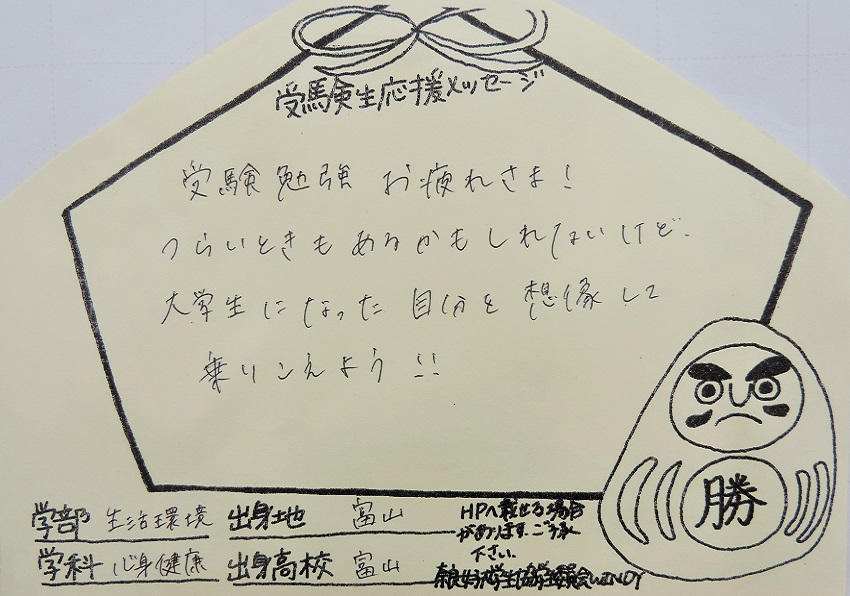 受験生応援メッセージ
受験勉強 お疲れさま！
つらいときもあるかもしれないけど、
大学生になった自分を想像して
乗りこえよう!!
勝
学部 生活環境 出身地 富山
学科 心身健康 出身高校 富山
HPへ載せる場合
があります。ご了承
下さい。
奈良女子大学生協学生委員会WINDY